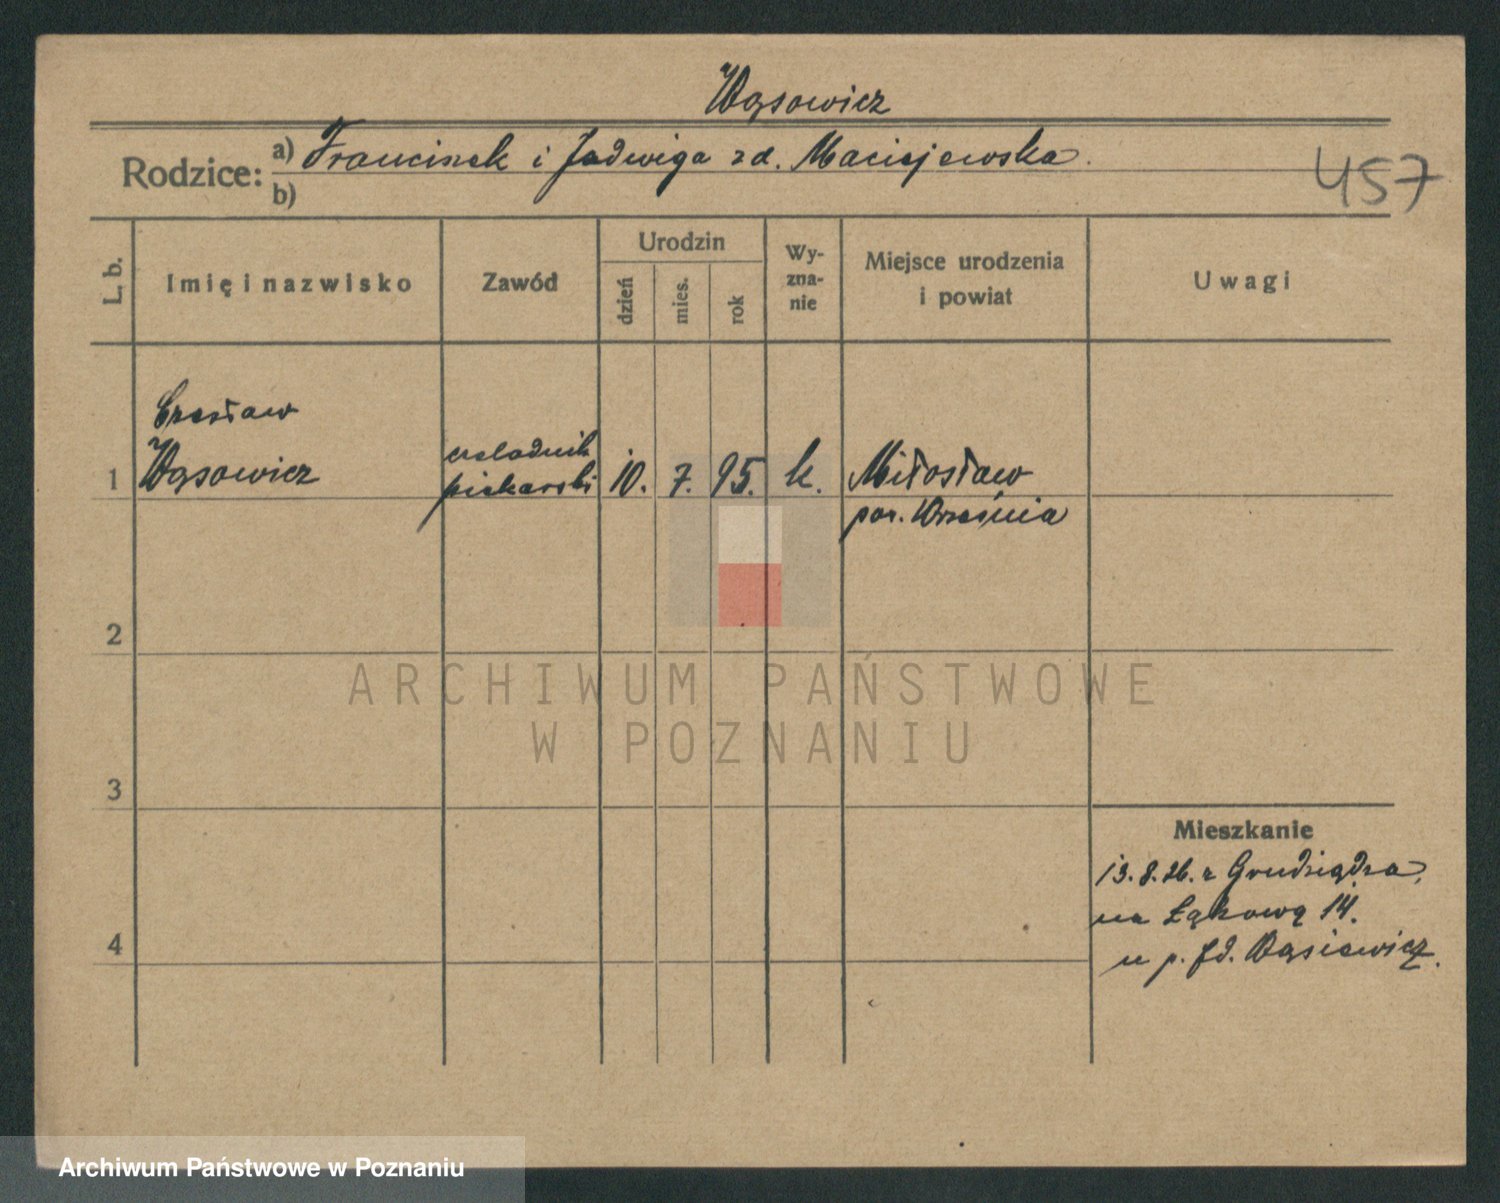 Wąsowicz
Rodzice: a) Franciszek i Jadwiga zd. Maciejewska.
b)
457
L. b.
Imię i nazwisko
Zawód
Urodzin
dzień
mies.
rok
Wy-
zna-
nie
Miejsce urodzenia
i powiat
Uwagi
Czesław
1 Wąsowicz
czeladnik
piekarski
10. 7. 95. k.
Miłosław
pow. Września
2
3
4
Mieszkanie
13.8.26. z Grudziądza,
na Łąkową 14.
u p. Jd. Wąsiewicz.
ARCHIWUM PAŃSTWOWE
W POZNANIU
Archiwum Państwowe w Poznaniu